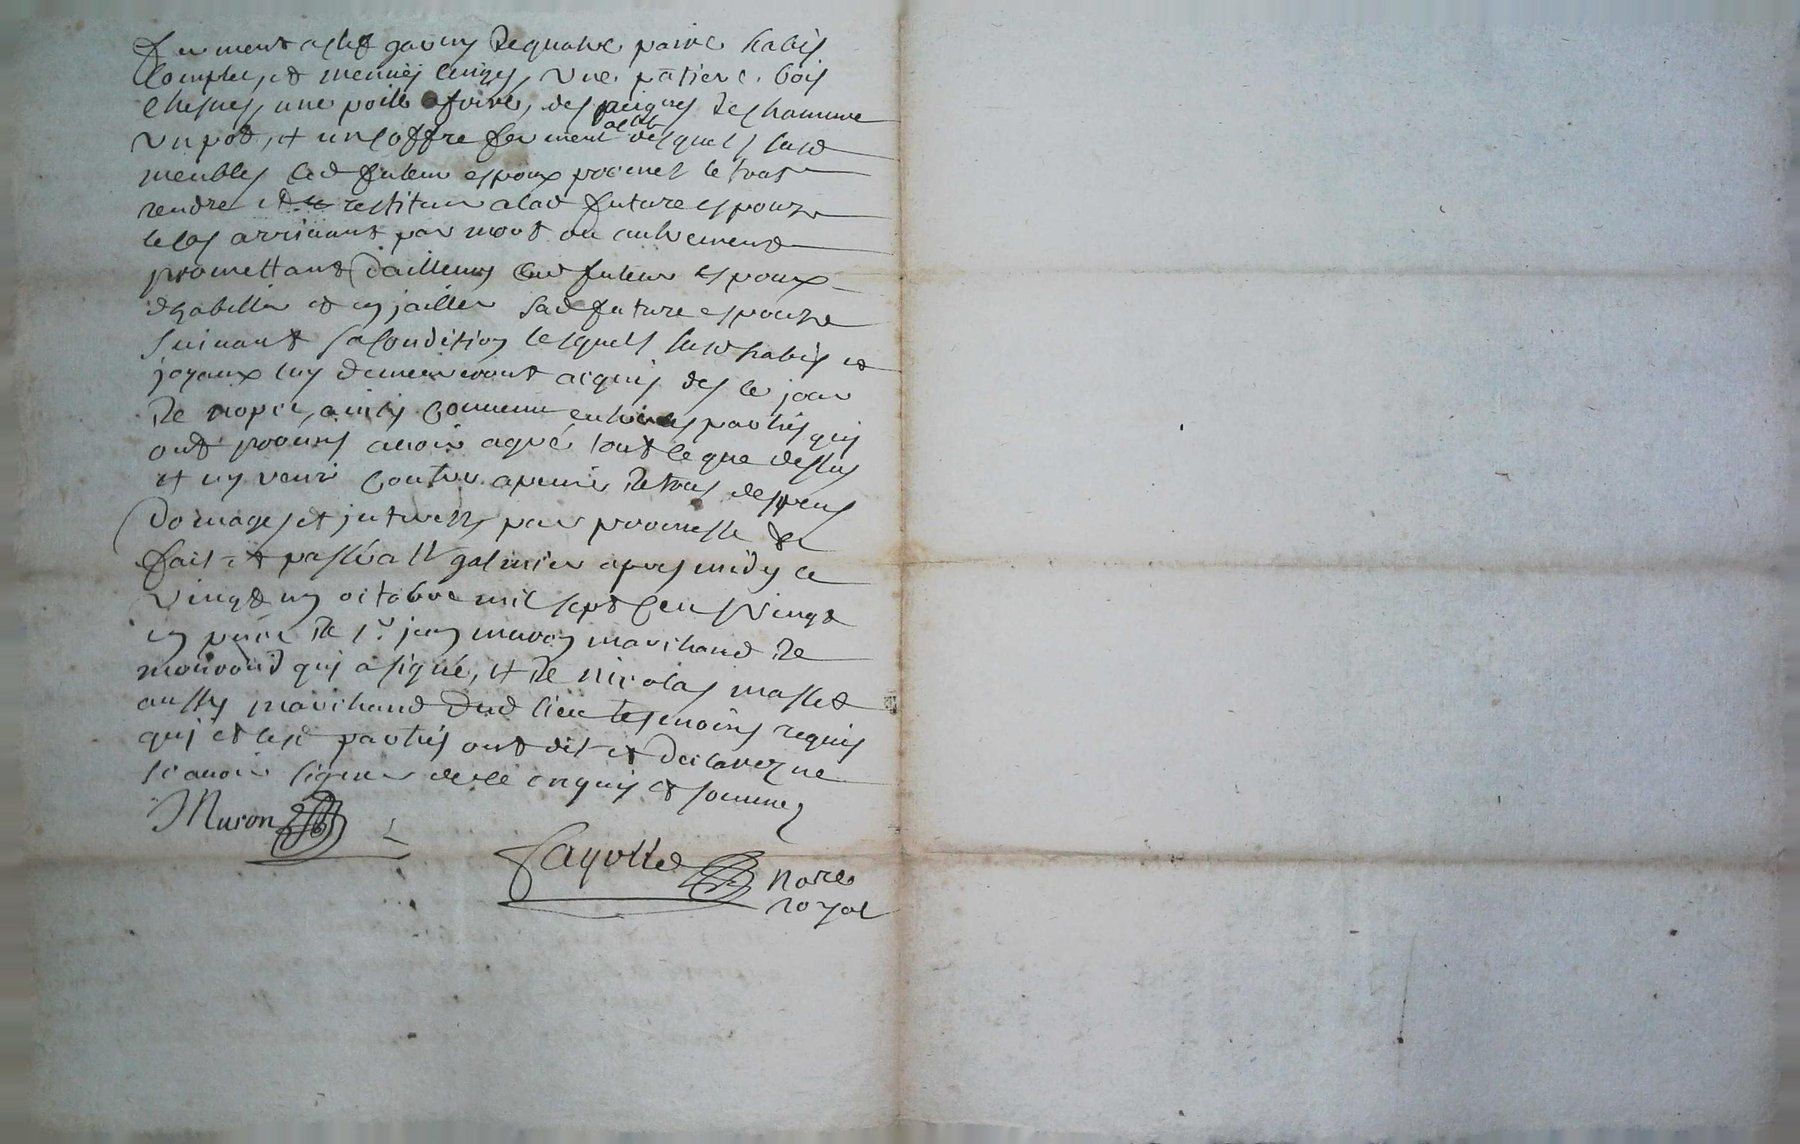 fermant a clef garny de quatre paire habis
complet, et menues linges, une patiere bois
chesnes, une poille a frire, des peignes de chanure
un pot, et un coffre fermant a clef desquels susd
meubles led futur espoux promet le tout
rendre et restituer a lad future espouze
le cas arrivant par mort ou autrement
promettant d'ailleurs led futur espoux
d'habiller et enjailler sad future espouze
suivant sa condition lesquels susd habis et
joyaux luy demeureront acquis des le jour
de nopce, ainsy convenu entre les parties quy
ont promis avoir agreé tout ce que dessus
et ny venir contre a peine de tous despens
domages et interests par promesse &c
fait et passé a St galmier apres midy ce
vingt un octobre mil sept cens vingt
en pnce de sr jean muron marchand de
monrond quy a signé, et de nicolas masset
aussy marchand dud lieu tesmoins requis
quy et lesd parties ont dit et declarez ne
scavoir signer de ce enquis et sommez
Muron
fayolle nore
royal